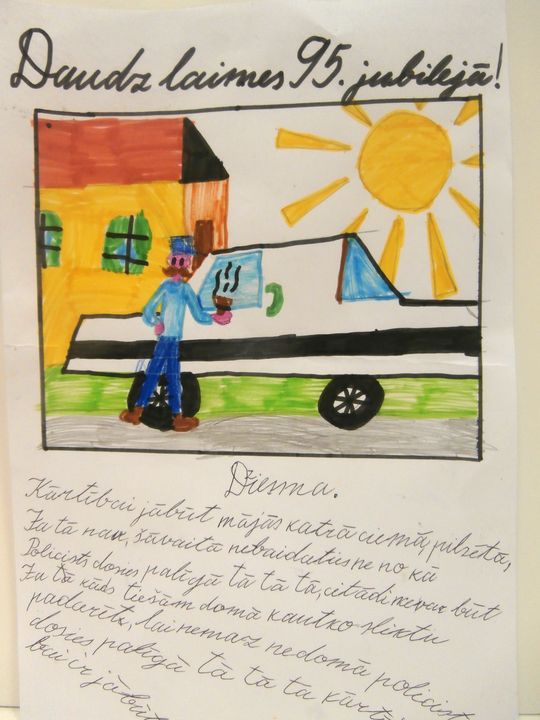 Daudz laimes 95. jubilejā!
Dziesma.
Kārtībai jābūt mājās katrā ciemā, pilsētā,
Ja tā nav, šāvaitā nebaidaties ne no kā
Policists dosies palīgā tā tā tā, citādi nevar būt
Ja tā kāds tiešām domā kautko sliktu
padarīt, lai nemaz nedomā policists
dosies palīgā tā tā ta kārtī
bai ir jābūt